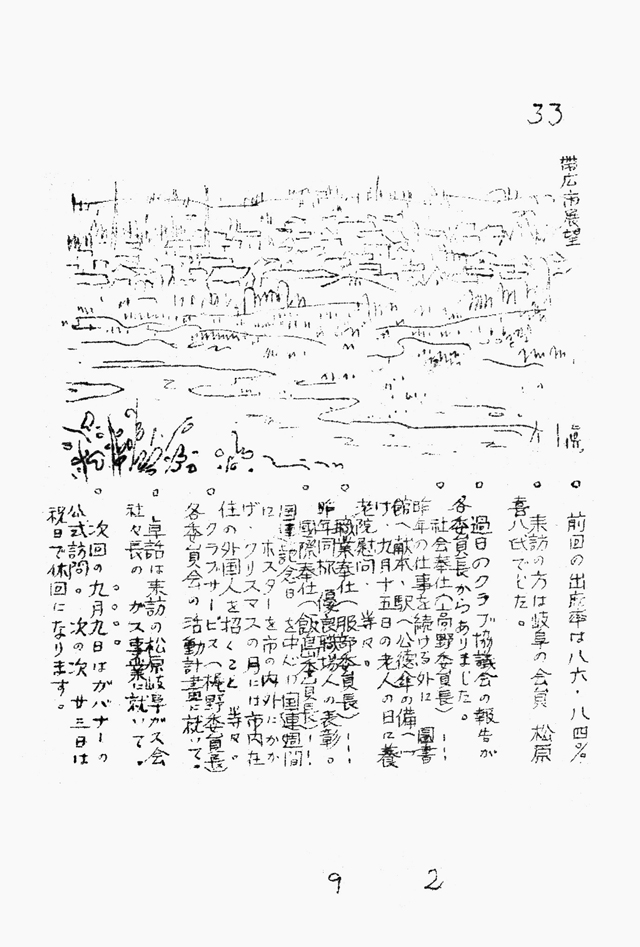 33
帯広市展望
前回の出席率は八六・八四%
来訪の方は岐阜の会員 松原
喜八氏でした。
過日のクラブ協議会の報告が
各委員長からありました。
社会奉仕(高野委員長)……
昨年の仕事を続ける外に 圖書
館へ献本、駅へ公徳傘の備へ付
け、九月十五日の老人の日に養
老院慰問、等々。
職業奉仕(服部委員長)……
昨年同様 優良職場人の表彰。
國際奉仕(飯島委員長)……
国連記念日を中心に国連週間
に ポスターを市の内外にかか
げ、クリスマスの月には市内在
住の外国人を招くこと 等々。
クラブサービス(梶野委員長)
各委員会の活動計畫に就いて。
卓話は来訪の松原岐阜ガス会
社々長の ガス事業に就いて。
次回の九月九日はガバナーの
公式訪問。次の次 廿三日は
祝日で休回になります。
9 2